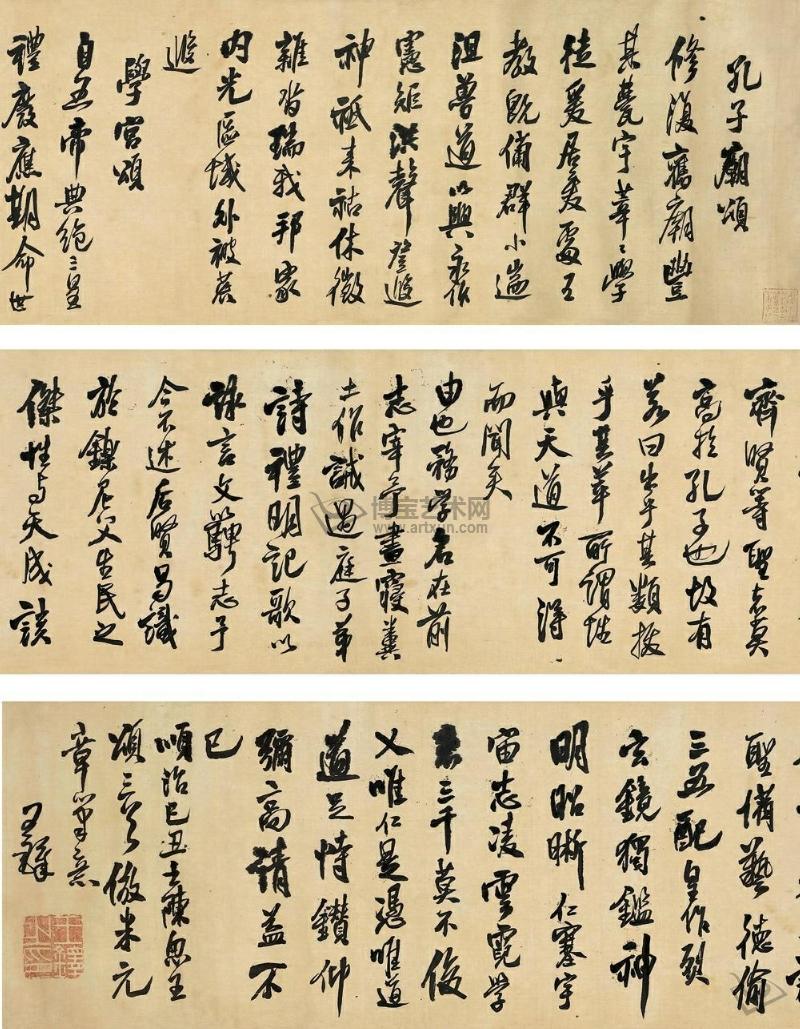 孔子廟頌
修復舊廟豐
其甍宇莘〻學
徒爰居爰處王
教既備群小遄
沮魯道以興永作
憲矩洪聲登遐
神祗來祜休徵
雜沓瑞我邦家
內光區域外被荒
遐
學宮頌
自五帝典絕三皇
禮廢應期命世
齊賢等聖者莫
高於孔子也故有
若曰出乎其類拔
乎其萃所謂性
與天道不可得
而聞矣
由也務學名在前
志宰予晝寢糞
土作誡過庭子弟
詩禮明記歌以
詠言文以騁志予
今不述后賢曷識
於鑠尼父生民之
傑性与天成該
聖備藝德倫
三五配皇作烈
玄鏡獨鑑神
明昭晰仁塞宇
宙志凌雲霓學
者三千莫不俊
乂唯仁是憑唯道
道足恃鑽仰
彌高請益不
已
順治己丑陳思王
頌三倣米元
章筆意
王鐸
博宝艺术网
www.artxun.com